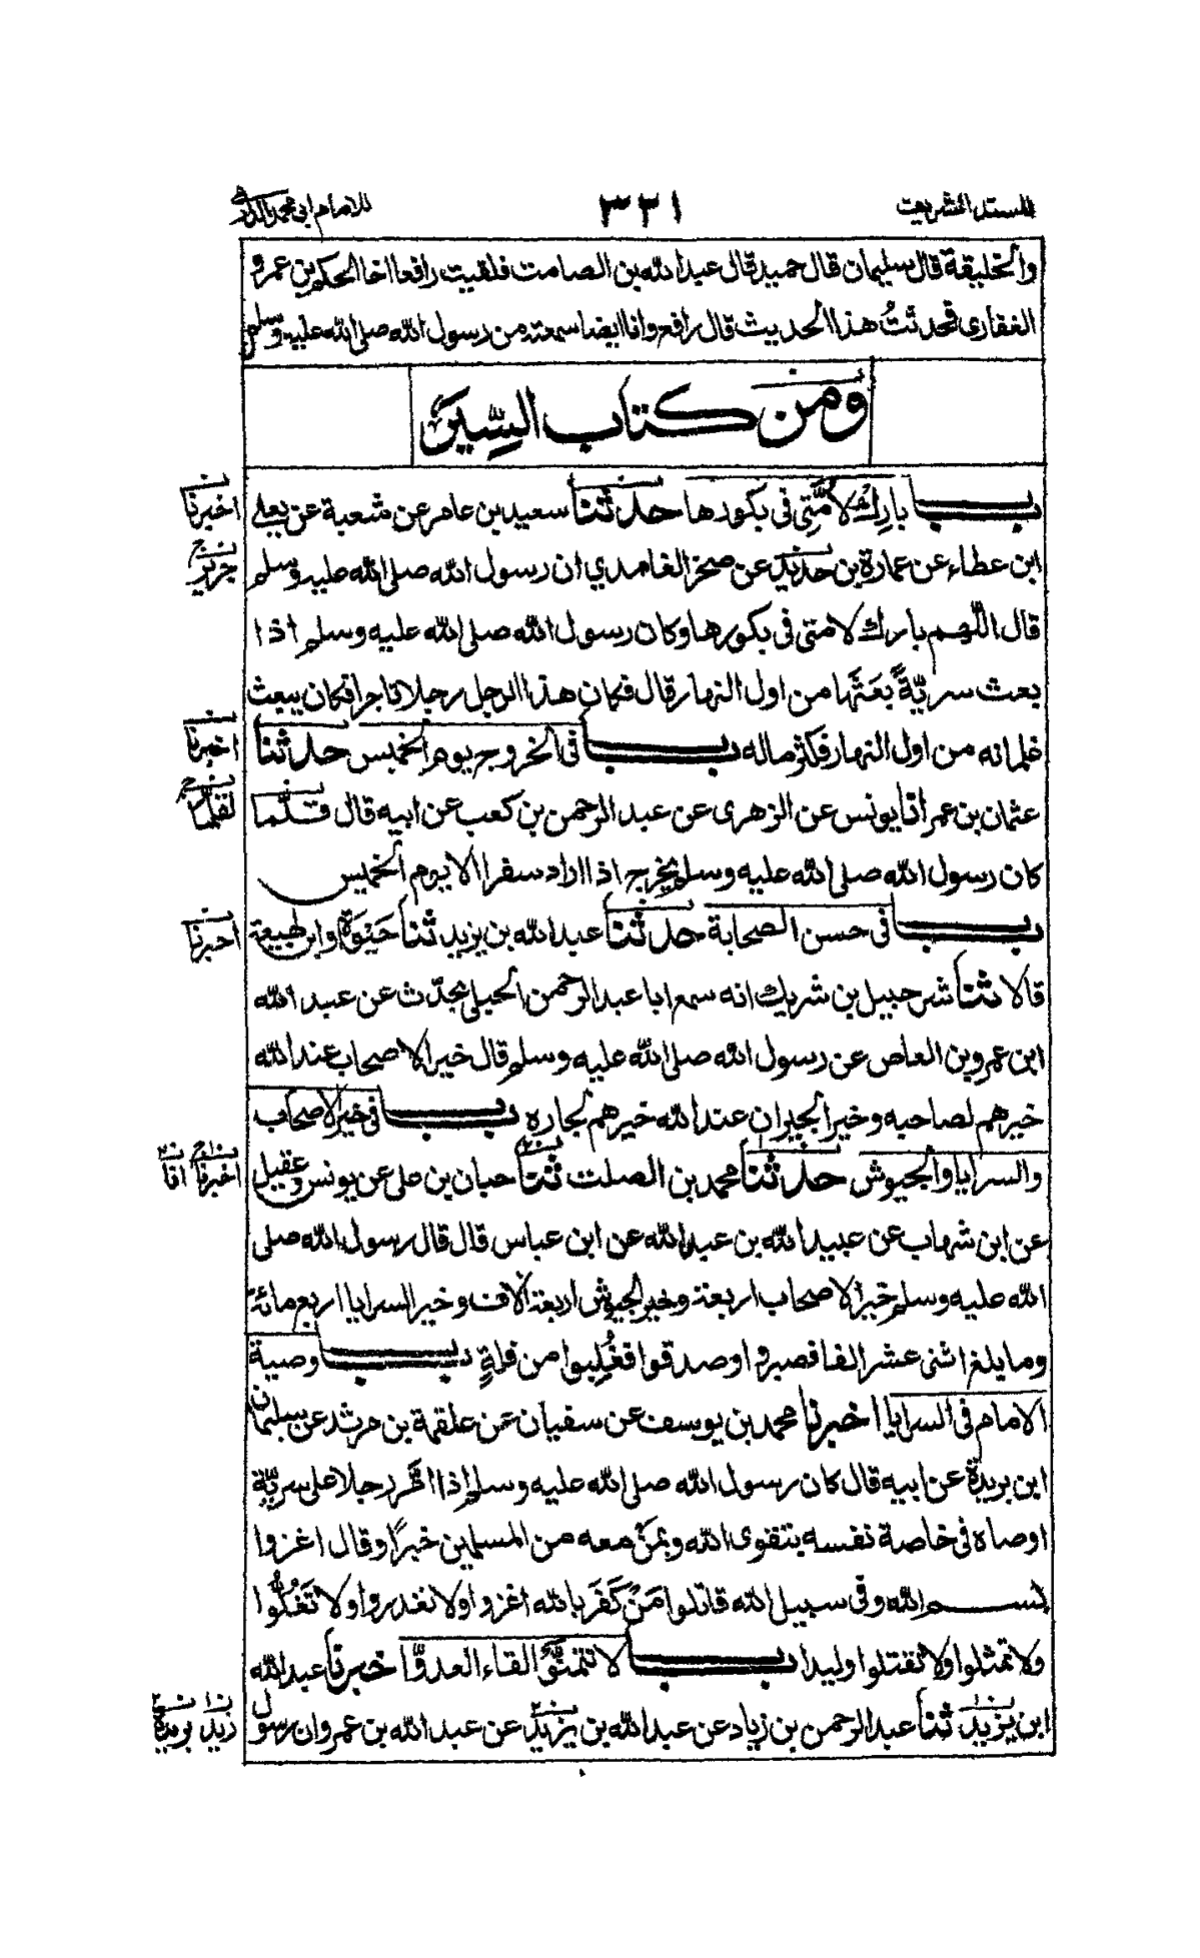 للمسند الشريعت ٣٣١ للامام ابی محمد الدارمی
والخليقة قال سليمان قال حميد قال عبد الله بن الصامت فلقيت رافعا اخا الحكم بن عمرو
الغفاری فحدثتُ هذا الحديث قال رافع وانا ايضا سمعته من رسول الله صلی الله عليه وسلم
ومن كتاب السِّير
باب باركْ لاُمّتی فی بكورها حدثنا سعيد بن عامر عن شعبة عن يعلی اخبرنا
ابن عطاء عن عمارة بن حديد عن صخر الغامدي ان رسول الله صلی الله عليه وسلم جرير
قال اللّهم بارك لامتی فی بكورها وكان رسول الله صلی الله عليه وسلم اذا
بعث سريّةً بَعَثَها من اول النهار قال فكان هذا الرجل رجلا تاجرا فكان يبعث
غلمانه من اول النهار فكثر ماله باب فی الخروج يوم الخميس حدثنا اخبرنا
عثمان بن عمر انا يونس عن الزهری عن عبد الرحمن بن كعب عن ابيه قال قلّما لقلّما
كان رسول الله صلی الله عليه وسلم يخرج اذا اراد سفرا الا يوم الخميس
باب فی حسن الصحابة حدثنا عبد الله بن يزيد ثنا حَيْوَة وابن لهيعة اخبرنا
قالا ثنا شرحبيل بن شريك انه سمع ابا عبد الرحمن الحبلی يحدّث عن عبد الله
ابن عمرو بن العاص عن رسول الله صلی الله عليه وسلم قال خير الاصحاب عند الله
خيرهم لصاحبه وخير الجيران عند الله خيرهم لجاره باب فی خير الاصحاب
والسرايا والجيوش حدثنا محمد بن الصلت ثنا حبان بن علی عن يونس وعقيل اخبرنا انا
عن ابن شهاب عن عبيد الله بن عبد الله عن ابن عباس قال قال رسول الله صلی
الله عليه وسلم خير الاصحاب اربعة وخير الجيوش اربعة آلاف وخير السرايا اربع مائة
وما بلغ اثنی عشر الفا فصبروا وصدقوا فغُلِبوا من قلةٍ باب وصية
الامام فی السرايا اخبرنا محمد بن يوسف عن سفيان عن علقمة بن مرثد عن سليمان
ابن بريدة عن ابيه قال كان رسول الله صلی الله عليه وسلم اذا امّر رجلا علی سريّةٍ
اوصاه فی خاصة نفسه بتقوی الله وبمن معه من المسلمين خيرًا وقال اغزوا
بسم الله وفی سبيل الله قاتلوا مَنْ كَفَرَ بالله اغزوا ولا تغدروا ولا تَغُلُّوا
ولا تمثلوا ولا تقتلوا وليدا باب لا تتمنّوا لقاء العدوّ اخبرنا عبد الله
ابن يزيد ثنا عبد الرحمن بن زياد عن عبد الله بن يزيد عن عبد الله بن عمرو ان رسول زيد بريدة